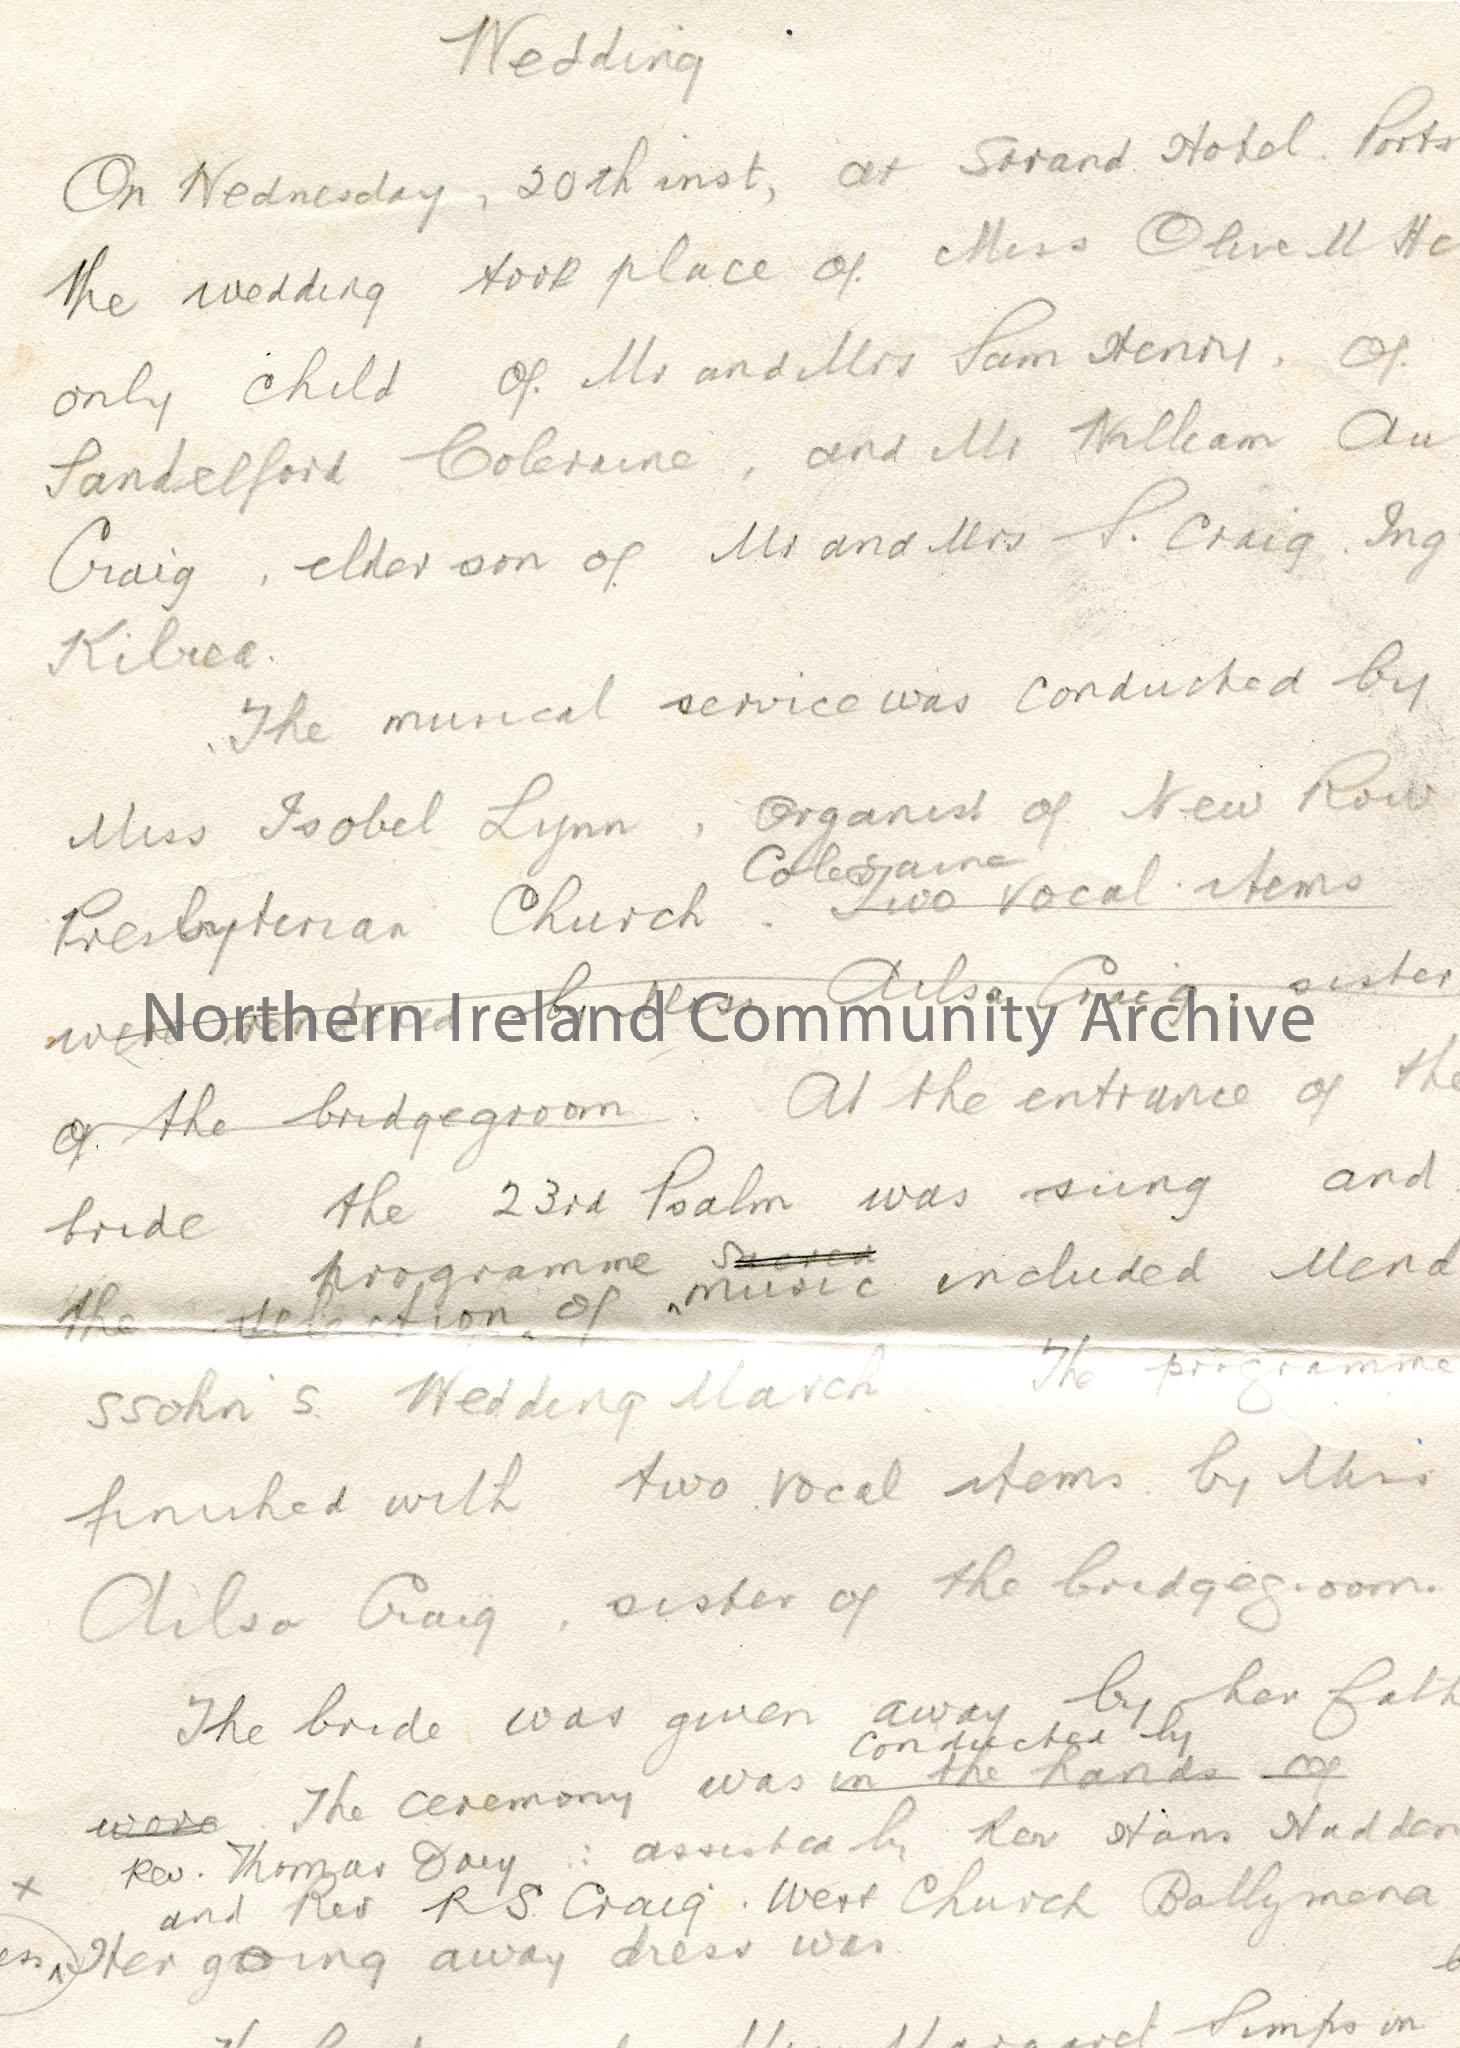 Wedding
On Wednesday, 20th inst, at Strand Hotel. Ports
the wedding took place of Miss Olive M He
only child of Mr and Mrs Sam Henry, of
Sandelford Coleraine, and Mr William Au
Craig, elder son of Mr and Mrs S. Craig. Ing
Kilrea.
The musical service was conducted by
Miss Isobel Lynn, Organist of New Row
Coleraine
Presbyterian Church. Two vocal items
were rendered by Miss Ailsa Craig, sister
Northern Ireland Community Archive
of the bridgegroom. At the entrance of the
bride the 23rd Psalm was sung and
programme Sacred
the selection of music included Mend
ssohn's. Wedding March. The programme
finished with two vocal items by Miss
Ailsa Craig, sister of the bridgegroom.
The bride was given away by her fath
conducted by
were. The ceremony was in the hands of
Rev. Thomas Doey : assisted by Rev Hans Hadden
x and Rev R S Craig. West Church Ballymena
Her going away dress was
Miss Margaret Simpson